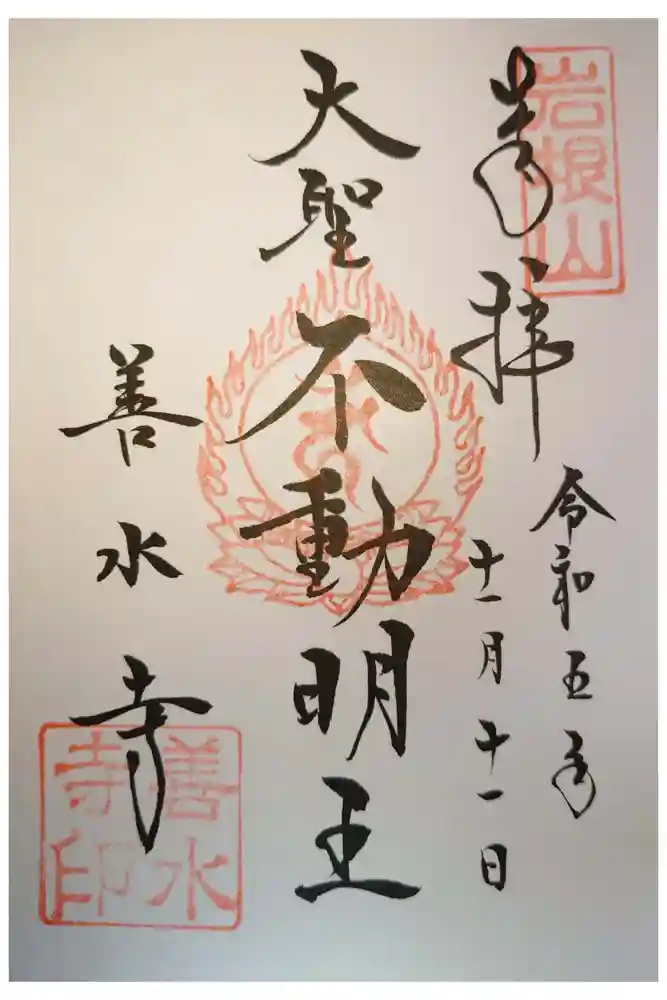 岩根山
奉拝
令和五年
十一月十一日
大聖不動明王
善水寺
善水
寺印